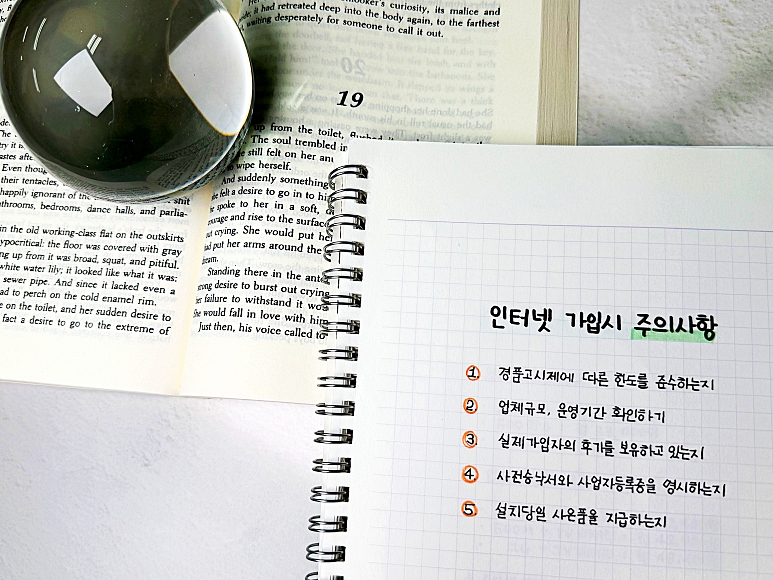 looker's curiosity, its malice and
it had retreated deep into the body again, to the farthest
waiting desperately for someone to call it out.
19
up from the toilet,
The soul trembled in
still felt on her and
wipe herself.
And suddenly something
felt a desire to go in to hi
spoke to her in a soft, d
courage and rise to the surface
crying. She would put he
put her arms around the
dream.
Standing there in the ante
strong desire to burst out crying
her failure to withstand it wo
She would fall in love with him
Just then, his voice called to
Even thoug
their tentacles, shit
happily ignorant of the
bathrooms, bedrooms, dance halls, and parlia-
in the old working-class flat on the outskirts
hypocritical: the floor was covered with gray
ng up from it was broad, squat, and pitiful.
white water lily; it looked like what it was:
sewer pipe. And since it lacked even a
ad to perch on the cold enamel rim.
e on the toilet, and her sudden desire to
fact a desire to go to the extreme of
인터넷 가입시 주의사항
1. 경품고시제에 따른 한도를 준수하는지
2. 업체규모, 운영기간 확인하기
3. 실제가입자의 후기를 보유하고 있는지
4. 사전승낙서와 사업자등록증을 명시하는지
5. 설치당일 사은품을 지급하는지